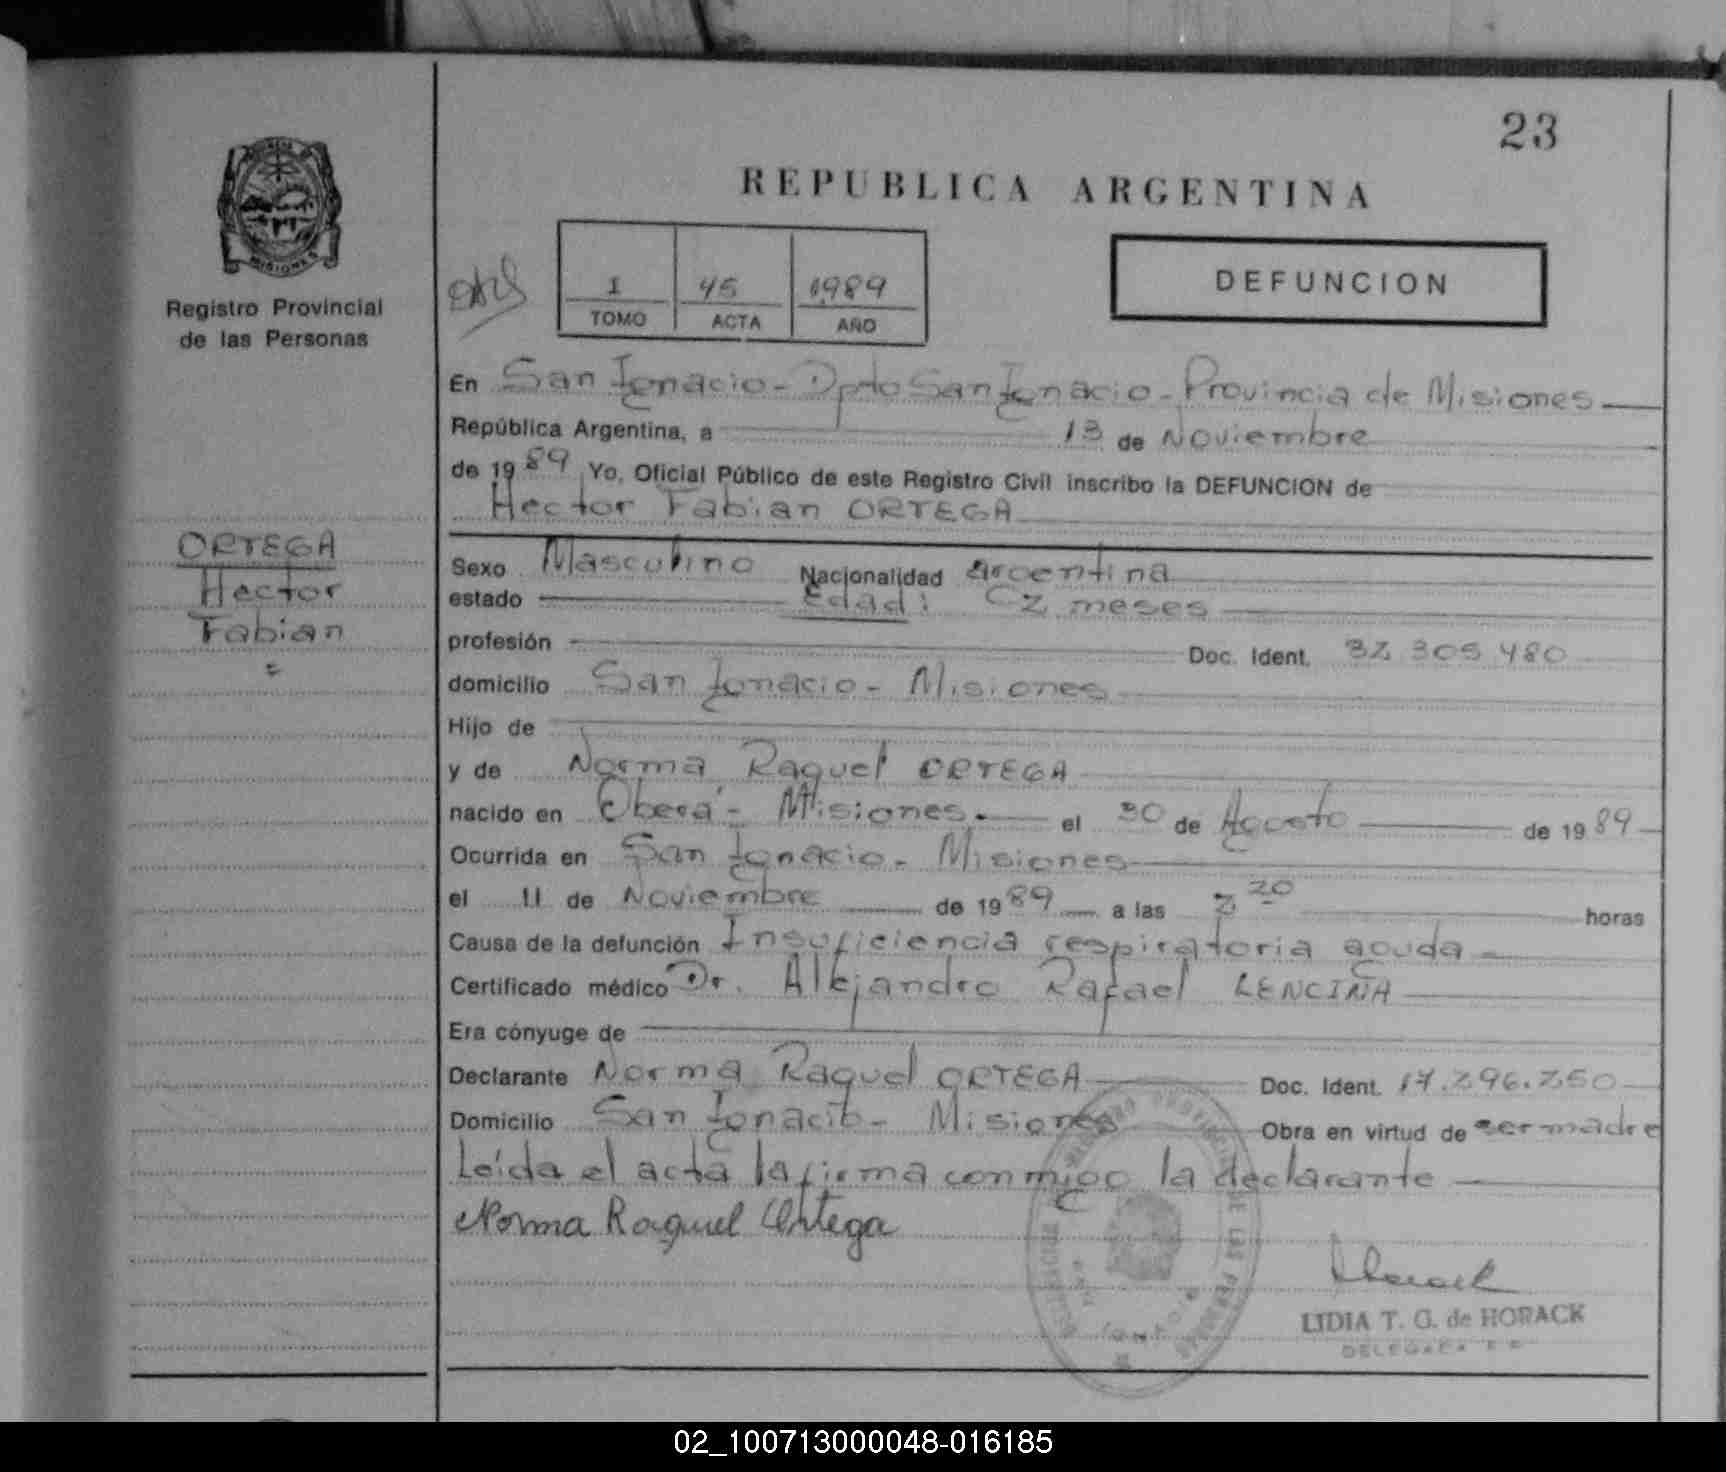 23
REPUBLICA ARGENTINA
MISIONES
Registro Provincial
de las Personas
1 45 1989
TOMO ACTA AÑO
DEFUNCION
En San Ignacio - Dpto San Ignacio - Provincia de Misiones
República Argentina, a 13 de Noviembre
de 1989 Yo, Oficial Público de este Registro Civil inscribo la DEFUNCION de
Hector Fabian ORTEGA
ORTEGA
Hector
Fabian
Sexo Masculino Nacionalidad argentina
estado Edad: 2 meses
profesión Doc. Ident. 32 305 480
domicilio San Ignacio - Misiones
Hijo de
y de Norma Raquel ORTEGA
nacido en Oberá - Misiones.- el 30 de Agosto de 1989
Ocurrida en San Ignacio - Misiones
el 11 de Noviembre de 1989 a las 3 20 horas
Causa de la defunción Insuficiencia respiratoria aguda -
Certificado médico Dr. Alejandro Rafael LENCINA
Era cónyuge de
Declarante Norma Raquel ORTEGA Doc. Ident. 17.296.250
Domicilio San Ignacio - Misiones Obra en virtud de ser madre
Leída el acta la firma conmigo la declarante
Norma Raquel Ortega
LIDIA T. G. de HORACK
02_100713000048-016185